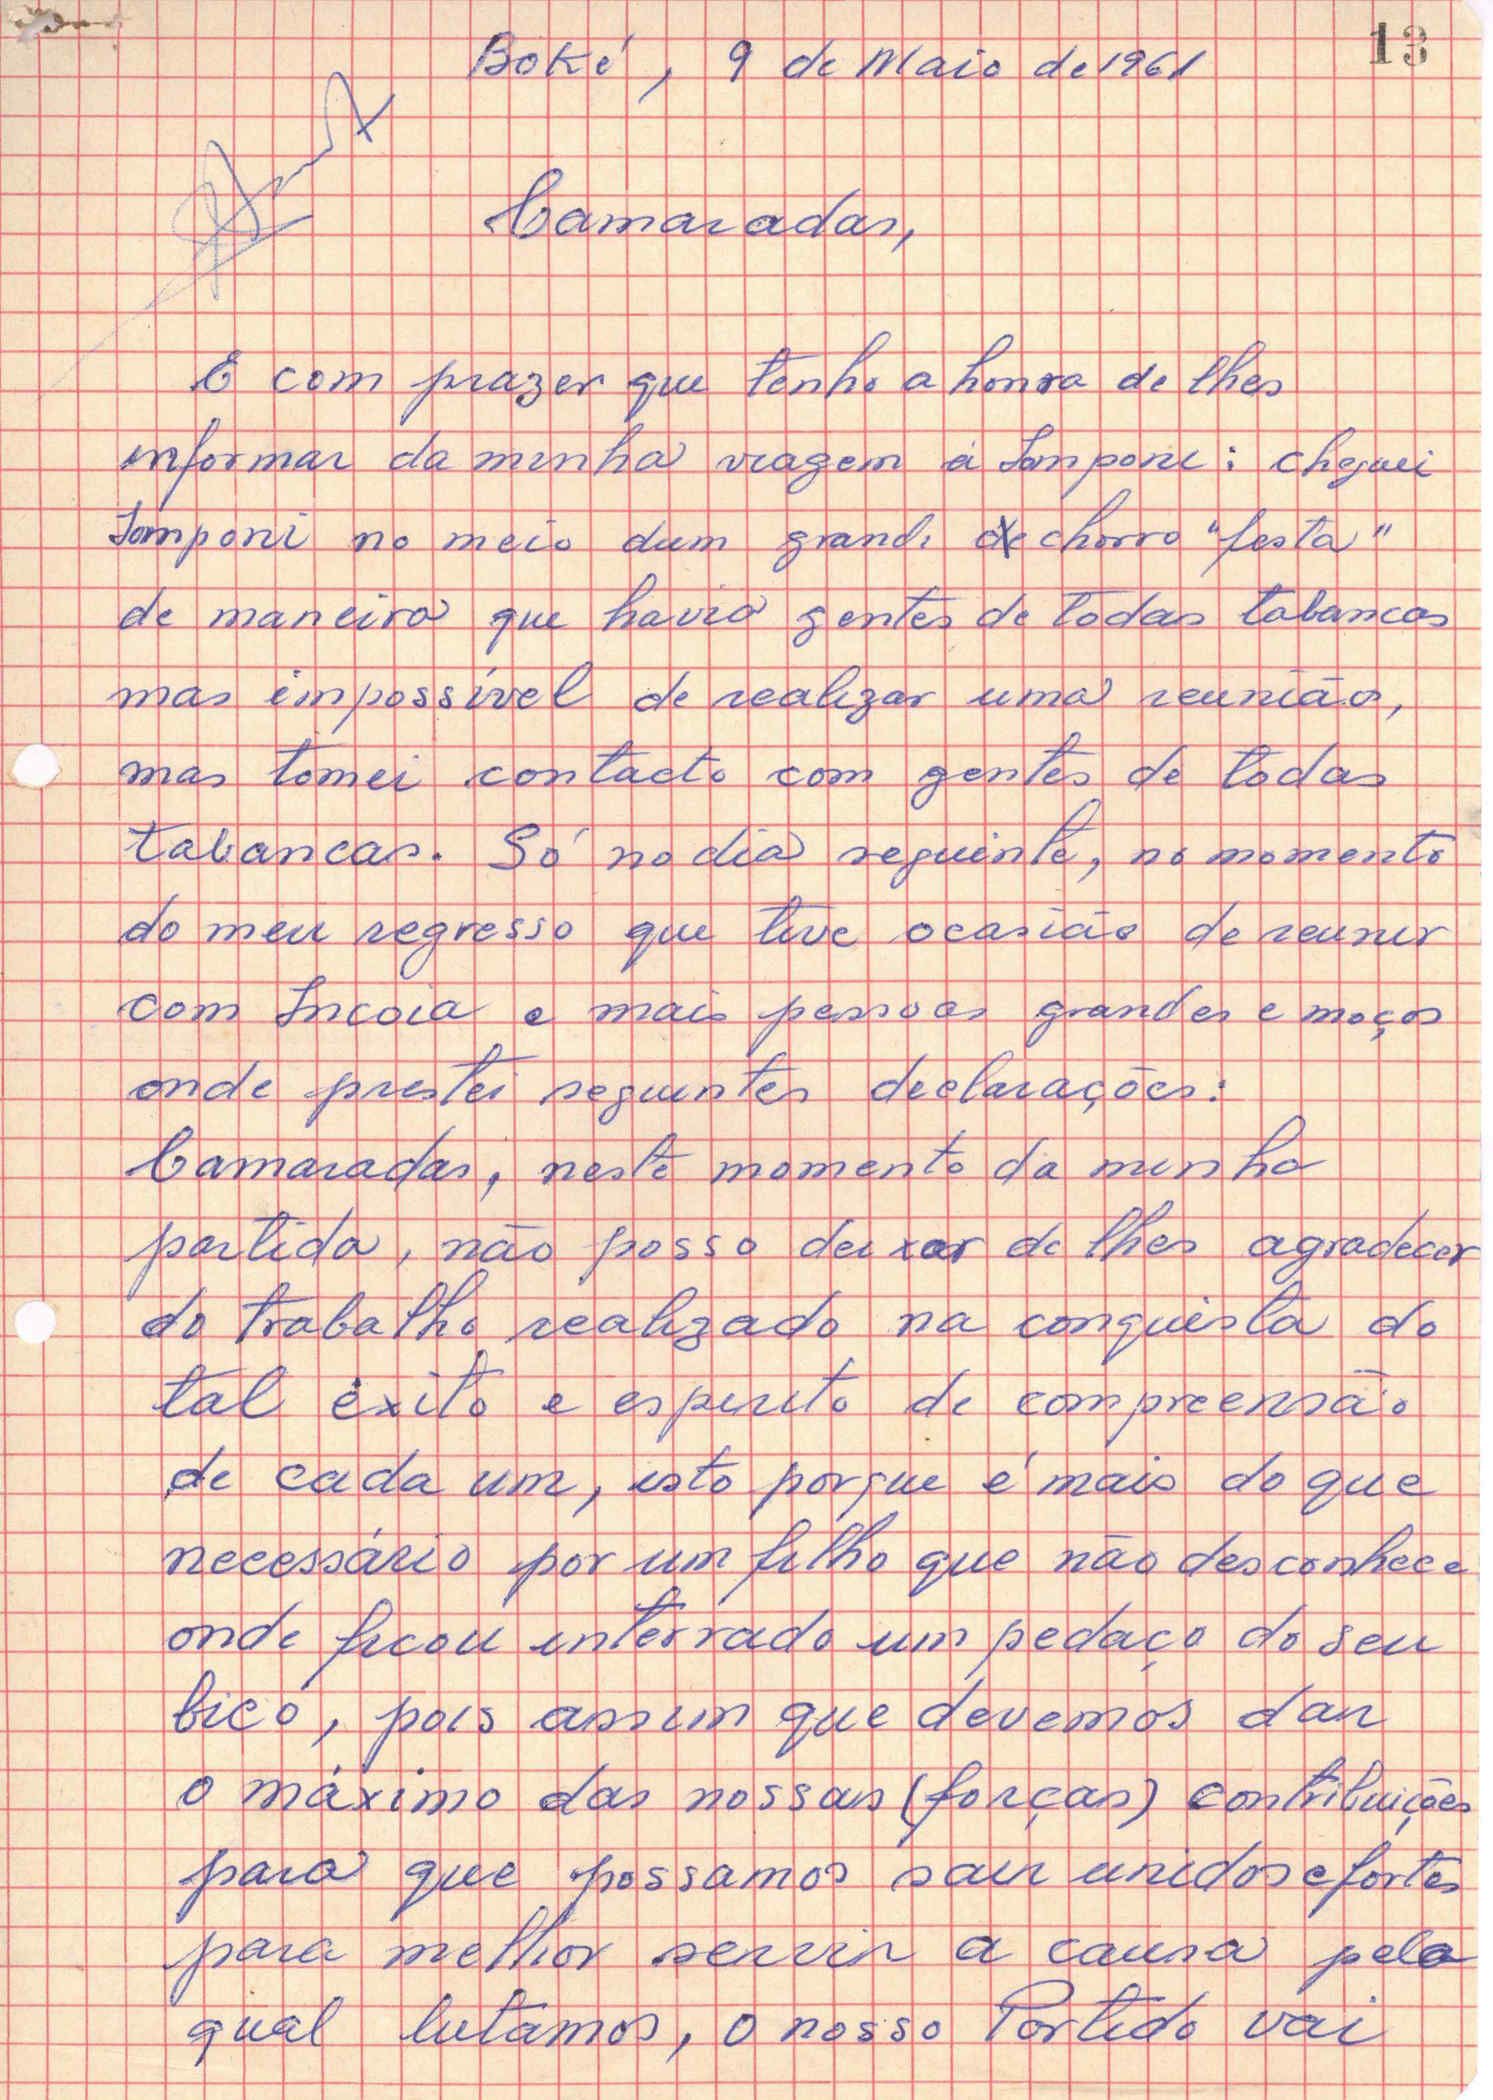 13
Boké, 9 de Maio de 1961
Camaradas,
É com prazer que tenho a honra de lhes
informar da minha viagem à Tomponi: cheguei
Tomponi no meio dum grande chorro "festa"
de maneira que havia gentes de todas tabancas
mas impossível de realizar uma reunião,
mas tomei contacto com gentes de todas
tabancas. Só no dia seguinte, no momento
do meu regresso que tive ocasião de reunir
com Incoia e mais pessoas grandes e moços
onde prestei seguintes declarações:
Camaradas, neste momento da minha
partida, não posso deixar de lhes agradecer
do trabalho realizado na conquista do
tal êxito e espirito de compreensão
de cada um, isto porque é mais do que
necessário por um filho que não desconhece
onde ficou interrado um pedaço do seu
bico, pois assim que devemos dar
o máximo das nossas (forças) contribuições
para que possamos sair unidos e fortes
para melhor servir a causa pela
qual lutamos, o nosso Partido vai